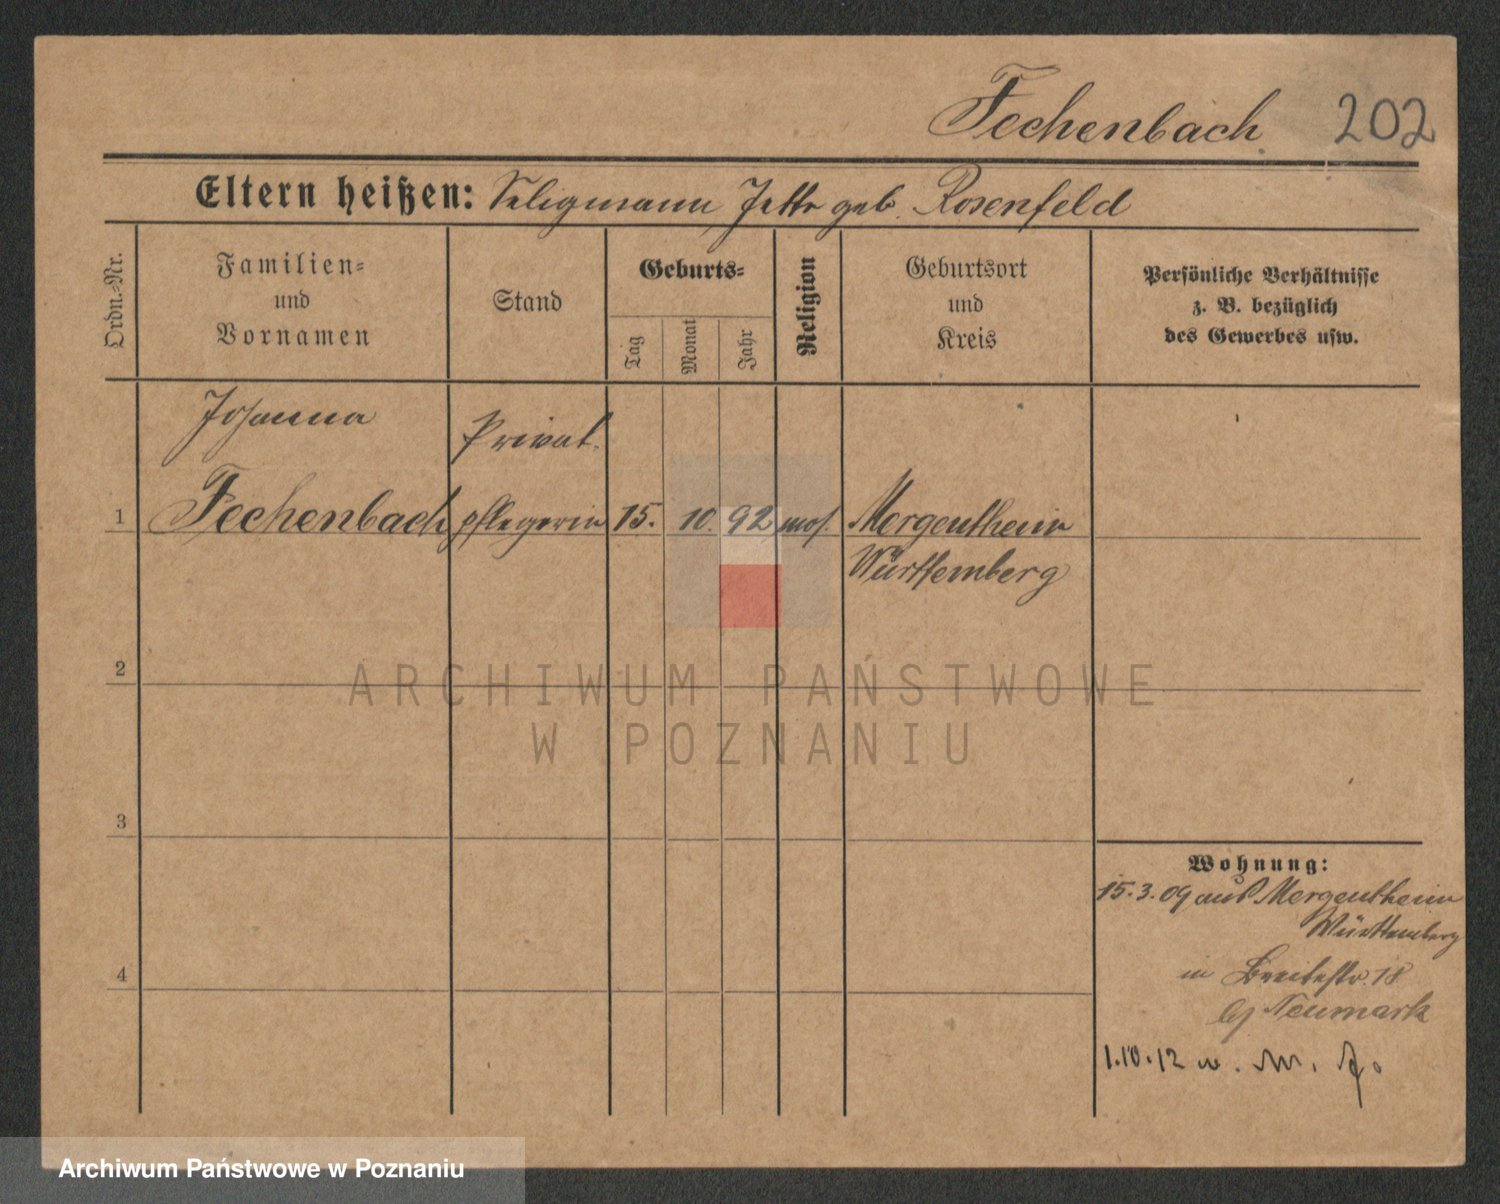 Fechenbach 202
Eltern heißen: Seligmann Jette geb. Rosenfeld
Ordn.-Nr.
Familien-
und
Vornamen
Stand
Geburts-
Tag
Monat
Jahr
Religion
Geburtsort
und
Kreis
Persönliche Verhältnisse
z. B. bezüglich
des Gewerbes usw.
Johanna
Privat.
1 Fechenbach pflegerin 15. 10. 92 mos. Mergentheim
Württemberg
2
ARCHIWUM PAŃSTWOWE
W POZNANIU
3
Wohnung:
15.3.09 aus Mergentheim
Württemberg
4
in Breitestr. 18
bj Neumark
1.10.12 n.
Archiwum Państwowe w Poznaniu